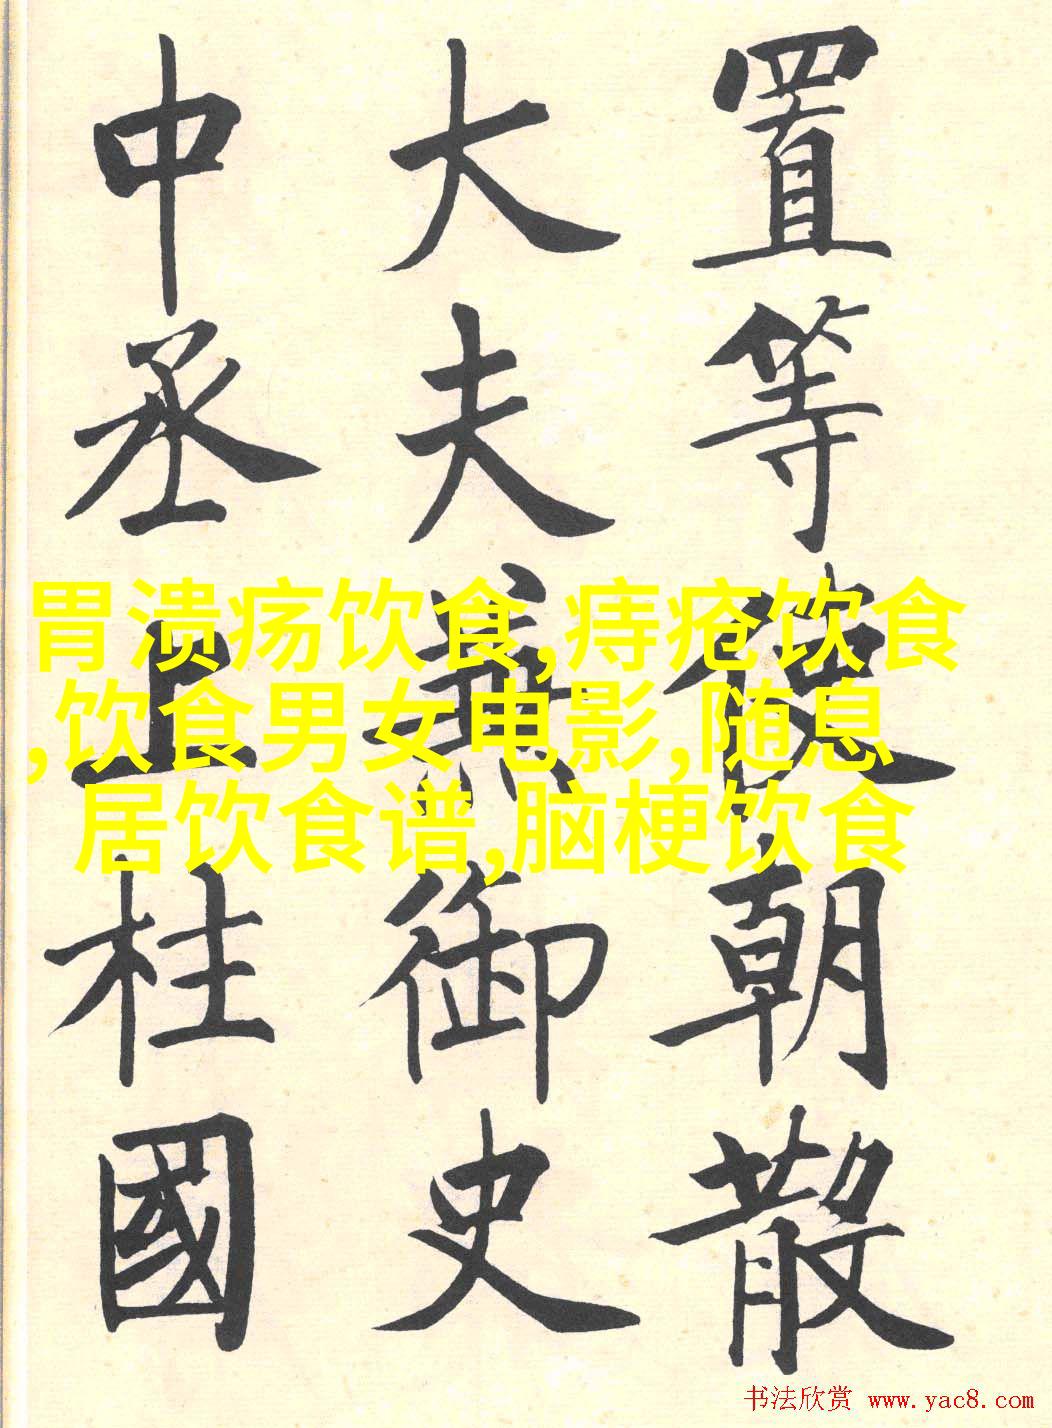 置等使朝散
大夫兼御史
中丞上柱國
胃溃疡饮食,痔疮饮食
,饮食男女电影,随息
居饮食谱,脑梗饮食
书法欣赏 www.yac8.com